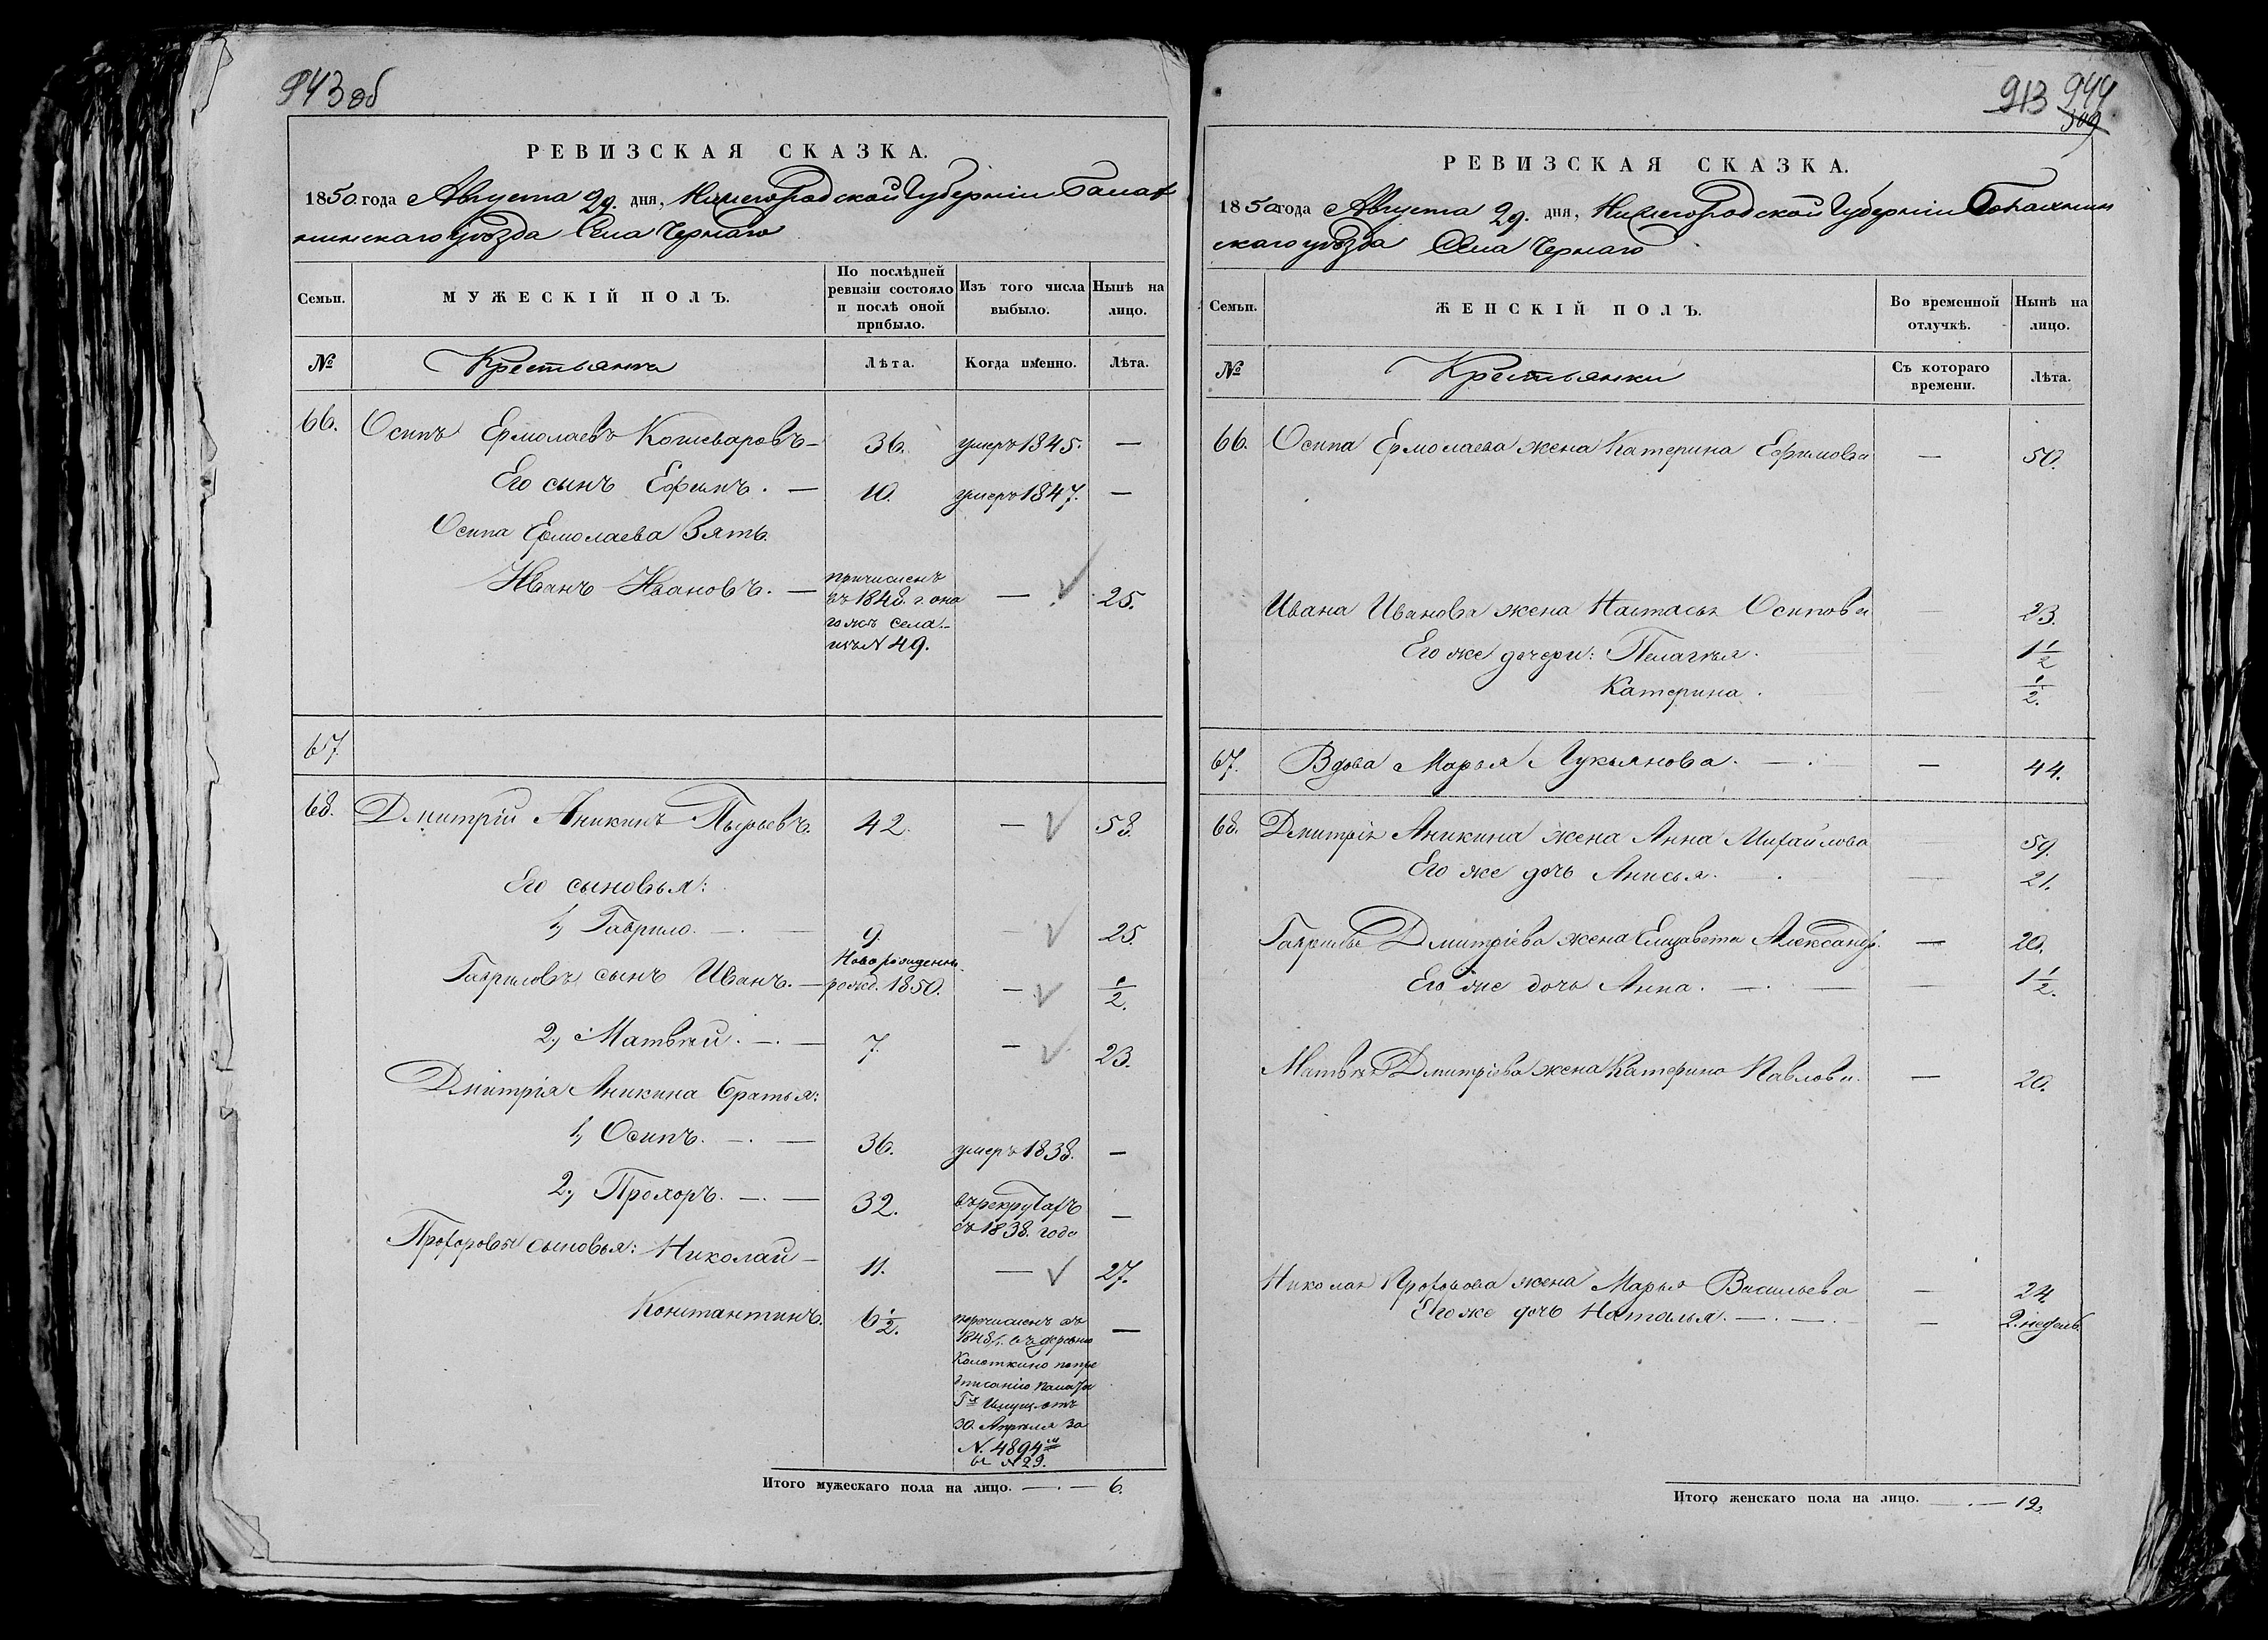 943 об
РЕВИЗСКАЯ СКАЗКА.
1850 года Августа 29 дня, Нижегородской Губернiи Балах
нинскаго уѣзда Села Чернаго
Семьи.
МУЖЕСКІЙ ПОЛЪ.
По послѣдней ревизіи состояло и послѣ оной прибыло.
Изъ того числа выбыло.
Нынѣ на лицо.
№
Крестьяне
Лѣта.
Когда именно.
Лѣта.
66. Осипъ Ермолаевъ Кошеваровъ — 36. умеръ 1845. —
Его сынъ Ефимъ. — 10. умеръ 1847. —
Осипа Ермолаева Зять
Иванъ Ивановъ. — — 25.
причисленъ
въ 1848. г. она
гожъ села
изъ N 49.
67.
68. Дмитрій Аникинъ Пырьевъ. 42. — 58.
Его сыновья:
1, Гаврило. — 9. — 25.
Новорожденны
Гавриловъ сынъ Иванъ. — рожд. 1850. — 1/2.
2, Матвѣй. — 7. — 23.
Дмитрія Аникина братья:
1, Осипъ. — 36. умеръ 1838. —
2, Прохоръ. — 32. въ рекрутахъ —
съ 1838. года
Прохоровы сыновья: Николай — 11. — 27.
Константинъ. 6 1/2. —
перечисленъ въ
1848 г. въ деревню
Колоткино по пре
дписанію Палаты
Гх Имущ. отъ
30. Апрѣля за
N. 4894м
въ N 29.
Итого мужескаго пола на лицо. — 6.
913 944
309
РЕВИЗСКАЯ СКАЗКА.
1850 года Августа 29. дня, Нижегородской Губерніи Балахнин
скаго уѣзда Села Чернаго
Семьи.
ЖЕНСКІЙ ПОЛЪ.
Во временной отлучкѣ.
Нынѣ на лицо.
№
Крестьянки
Съ котораго времени.
Лѣта.
66. Осипа Ермолаева жена Катерина Ефимова — 50.
Ивана Иванова жена Настасья Осипова — 23.
Его же дочери: Пелагѣя. 1 1/2
Катерина. 1/2.
67. Вдова Марья Лукьянова. — — 44.
68. Дмитрія Аникина жена Анна Михайлова — 59.
Его же дочь Анисья. — 21.
Гаврилы Дмитріева жена Елизавета Александр. — 20.
Его же дочь Анна. — — 1 1/2.
Матвѣя Дмитріева жена Катерина Павлова. — 20.
Николая Прохорова жена Марья Васильева — 24.
Его же дочь Наталья. — — 2. недель.
Итого женскаго пола на лицо. — 12.